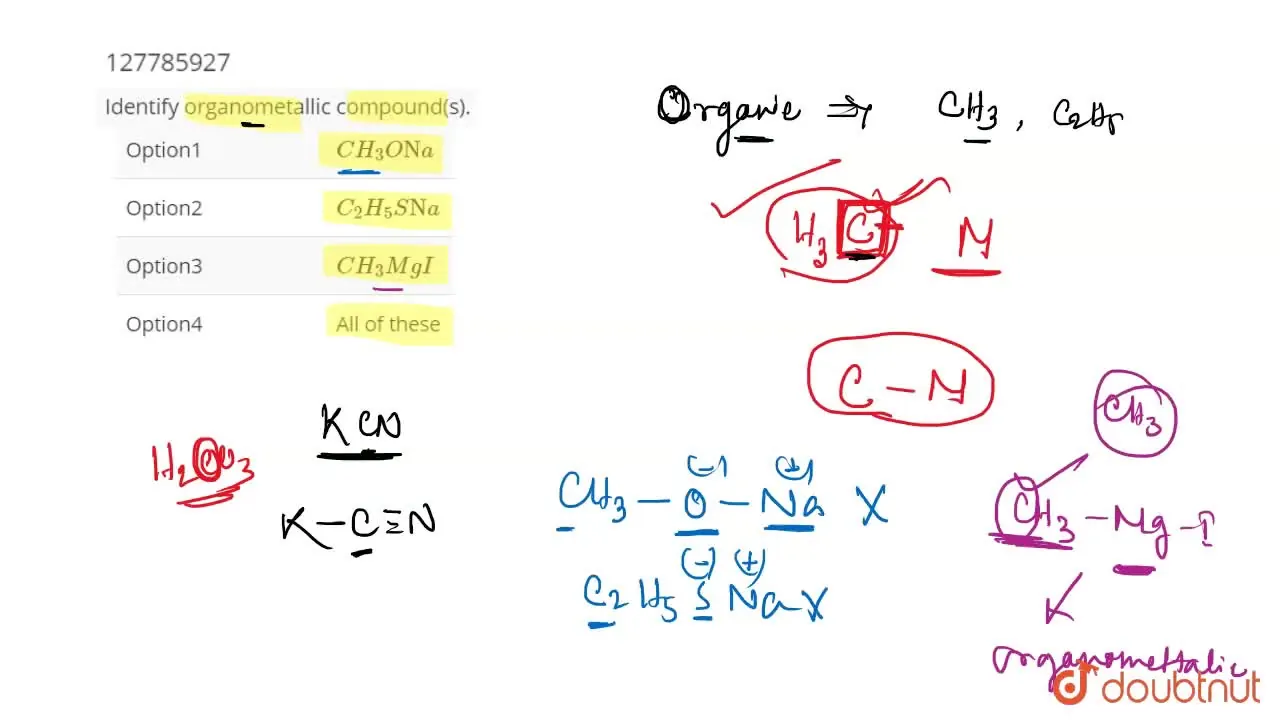 127785927
Identify organometallic compound(s).
Option1 CH₃ONa
Option2 C₂H₅SNa
Option3 CH₃MgI
Option4 All of these
Organic ⇒ CH₃, C₂H₅
H₃C - M
C - M
KCN
H₂CO₃
K - C ≡ N
CH₃ - O - Na X
(-) (+)
C₂H₅ S Na X
(-) (+)
CH₃
CH₃ - Mg - I
organomettalic
doubtnut